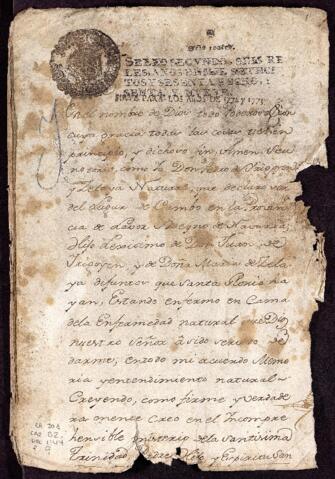 SELLO SEGVNDO, SEIS RE
LES, AÑOS DE MIL SETECI
TOS Y SESENTA Y OCHO, Y
SESENTA Y NUEVE.
En el nombre de Dios todo Poderoso Con
cuya gracia todas las cosas tienen
principio, y dichoso fin Amen. Sea
notorio, como Yo Don Pedro de Yrigoyen
y Zelaya Natural, que declaro ser
del Lugar de Cambo en la Provin
cia de Labor Reyno de Navarra,
Hijo Lexitimo de Don Juan, de
Yrigoyen, y de Doña Maria de Zela
ya difuntos que Santa Gloria ha
yan; Estando enfermo en Cama
de la Enfermedad natural que Dios
nuestro Señor á sido servido de
darme, en todo mi acuerdo Memo
ria y entendimiento natural
Creyendo, como firme y verdade
ramente Creo en el Incompre
hensible misterio de la Santissima
Trinidad, Padre, Hijo, y Espiritu San